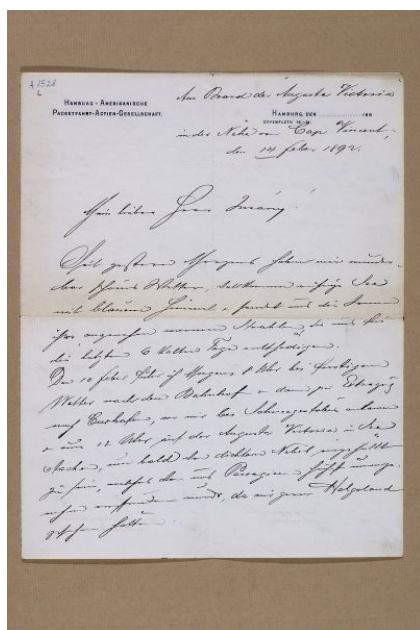 A 1521
HAMBURG-AMERIKANISCHE
PACKETFAHRT-ACTIEN-GESELLSCHAFT.
Am Board der Augusta Victoria
HAMBURG, DEN 188
in der Nähe von Cap Vincent,
den 14 febr 1892.
Mein lieber Herr
Seit gestern Morgens haben wir wunder-
bar schönes Wetter, vollkommen ruhige See
mit blauem Himmel + sendet uns die Sonne
ihre angenehm warmen Strahlen, die uns für
die letzten 6 kalten Tage entschädigen.
Den 10 feber fuhr ich Morgens 8 Uhr bei
Wetter nach dem Bahnhof + dann per Extrazug
nach Cuxhafen, wo wir bei Schneegestöber
+ um 12 Uhr auf der Augusta Victoria in See
stachen, um bald in dichten Nebel eingehüllt
zu sein, welches von uns Passagieren höchst unange-
nehm empfunden wurde, da wir gerne Helgoland
gesehen hätten.